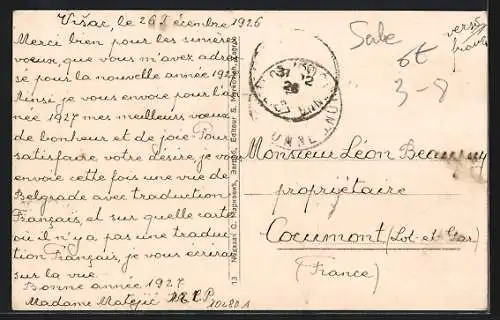 Vršac, le 26 Décembre 1926
Merci bien pour les sincères
vœux, que vous m'avez adres-
sé pour la nouvelle année 1927
Ainsi je vous envoie pour l'an-
née 1927 mes meilleurs vœux
de bonheur et de joie. Pour
satisfaire votre désire, je vous
envoie cette fois une vue de
Belgrade avec traduction
Français, et sur quelle carte
où il n'y a pas une traduc-
tion Français, je vous écrirai
sur la vue.
Bonne année 1927
Madame Matejić
10480A
13
Zagreb
Sabe
verso
6t
3-8
Monsieur Léon
propriétaire
Cocumont (Lot-et-Gar)
(France)